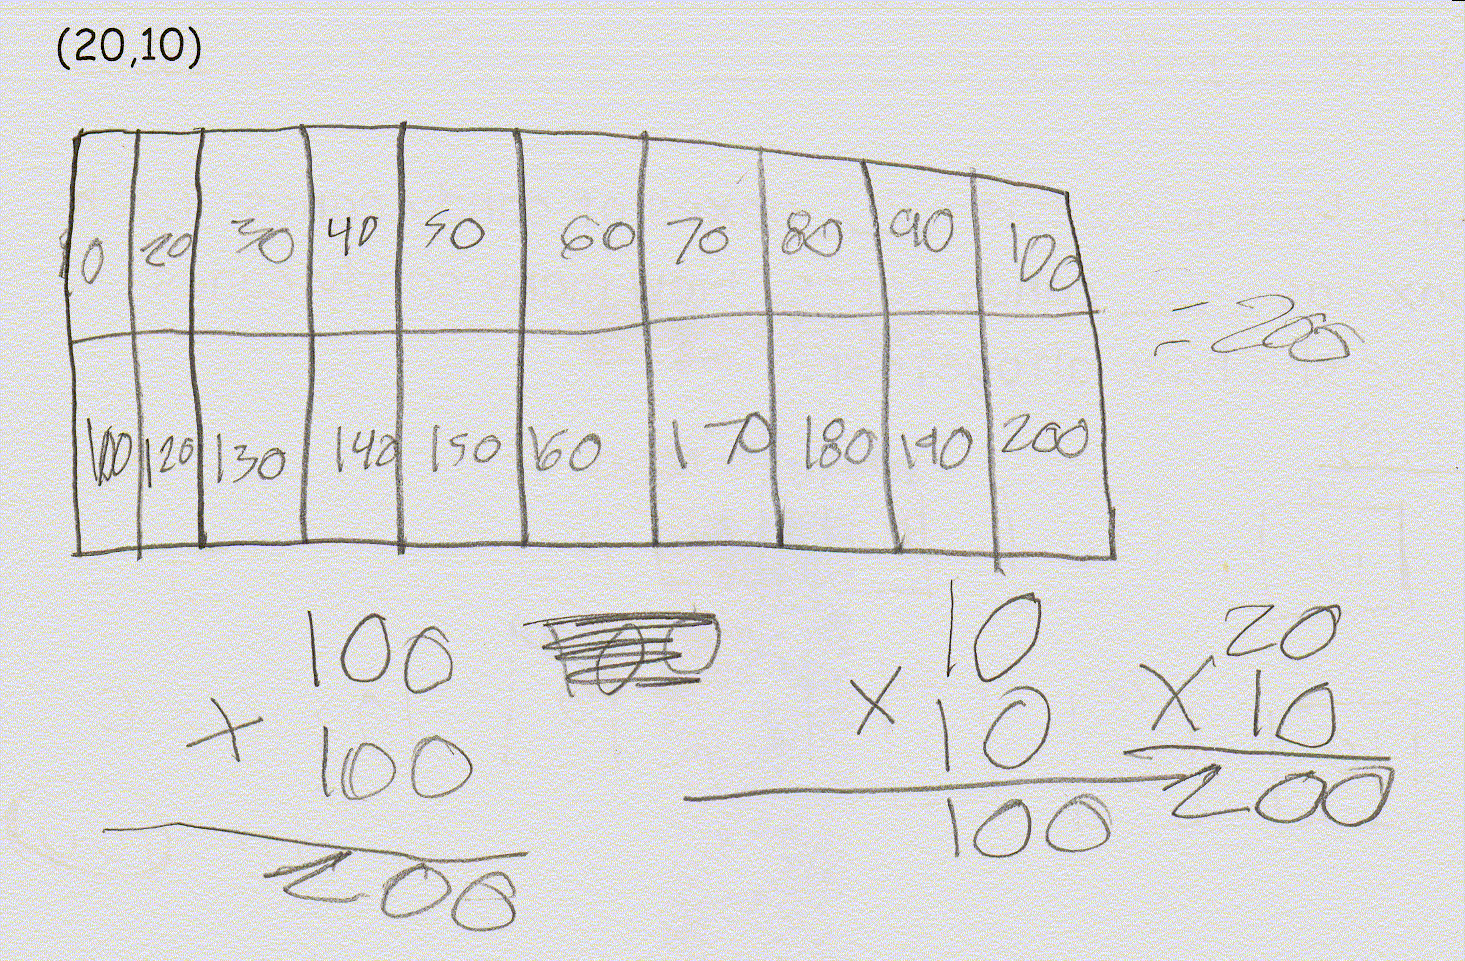 (20,10)
10 20 30 40 50 60 70 80 90 100
100 120 130 140 150 160 170 180 190 200
= 200
100 100 10 20
+ 100 × 10 × 10
200 100 200